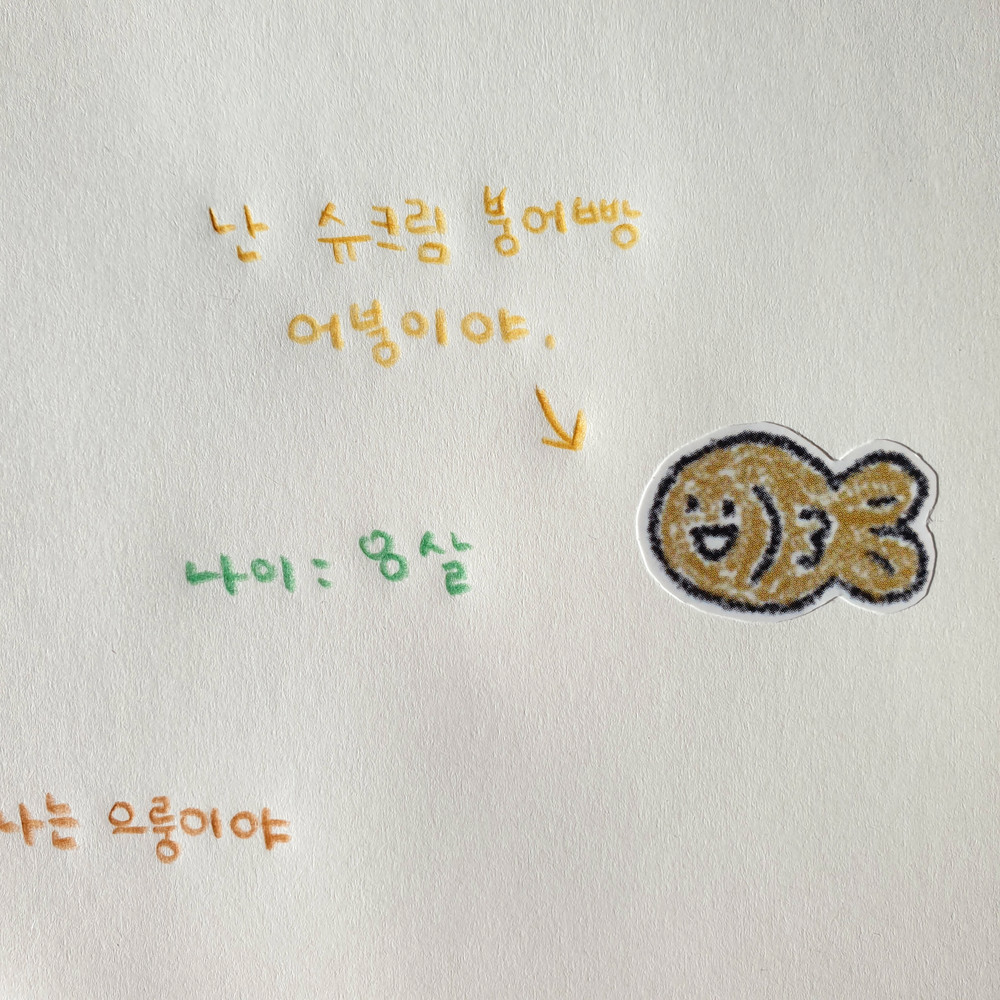 난 슈크림 붕어빵
어붕이야.
나이: 8살
나는 으룽이야